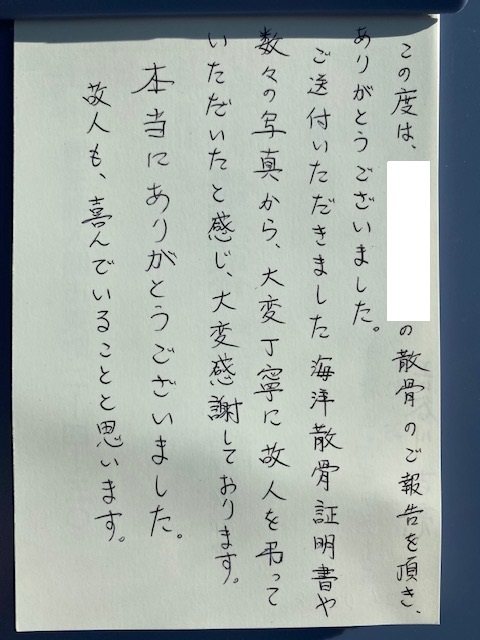 この度は、の散骨のご報告を頂き、
ありがとうございました。
ご送付いただきました海洋散骨証明書や
数々の写真から、大変丁寧に故人を弔って
いただいたと感じ、大変感謝しております。
本当にありがとうございました。
故人も、喜んでいることと思います。